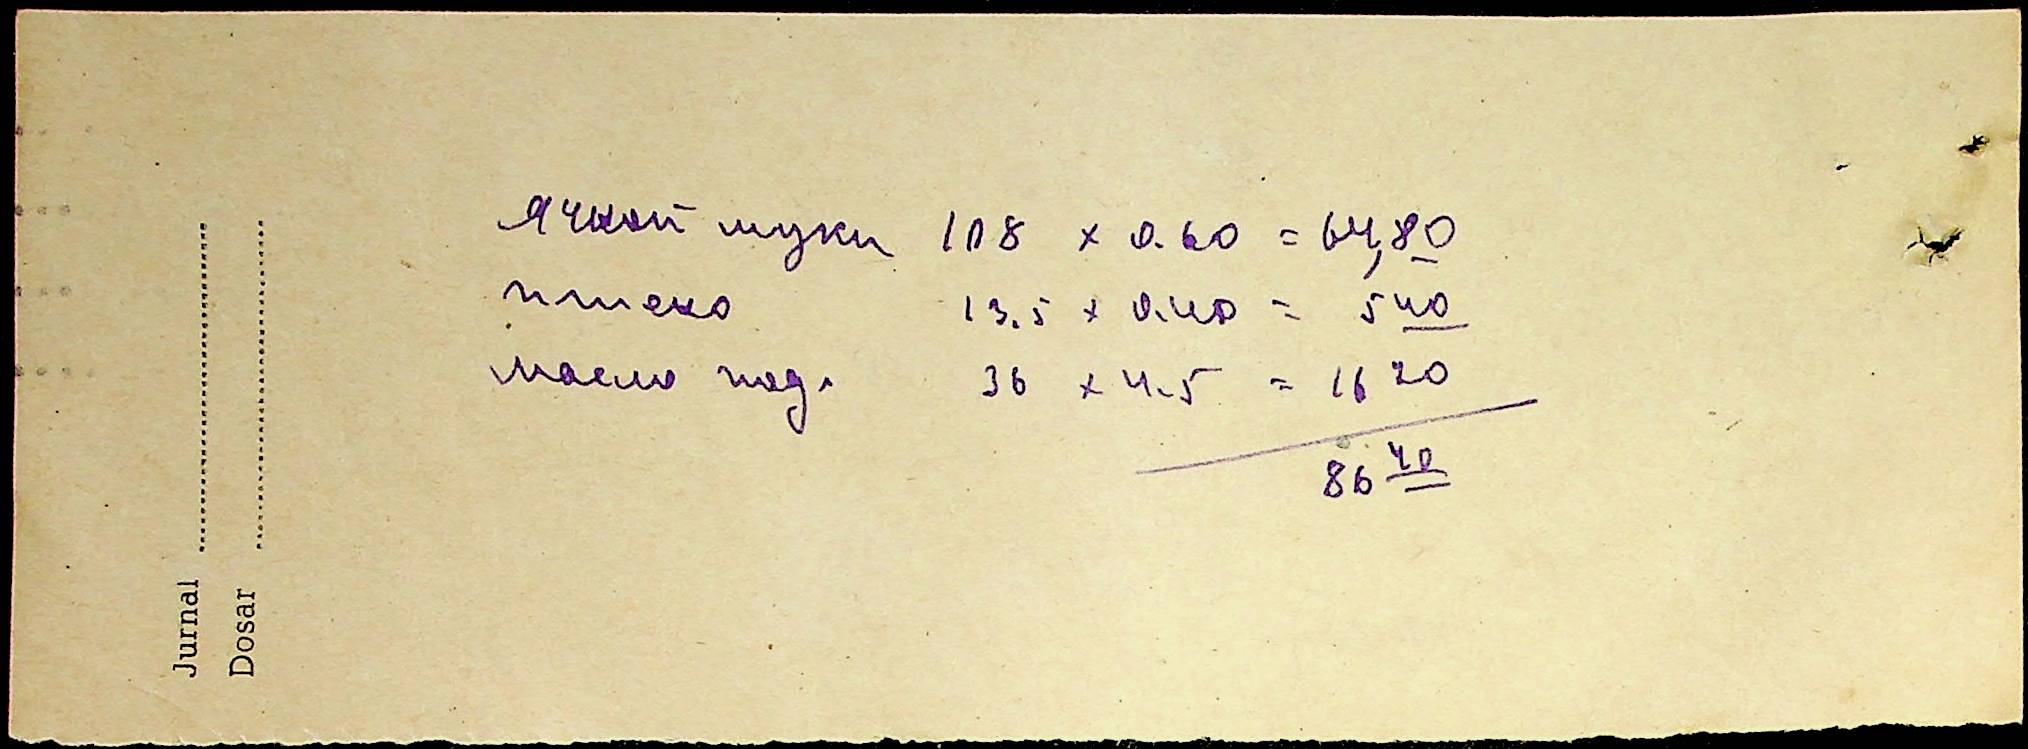 Ячной муки 108 × 0.60 = 64,80
пшено 13.5 × 0.40 = 540
масло под. 36 × 4.5 = 16 20
86 40
Jurnal
Dosar